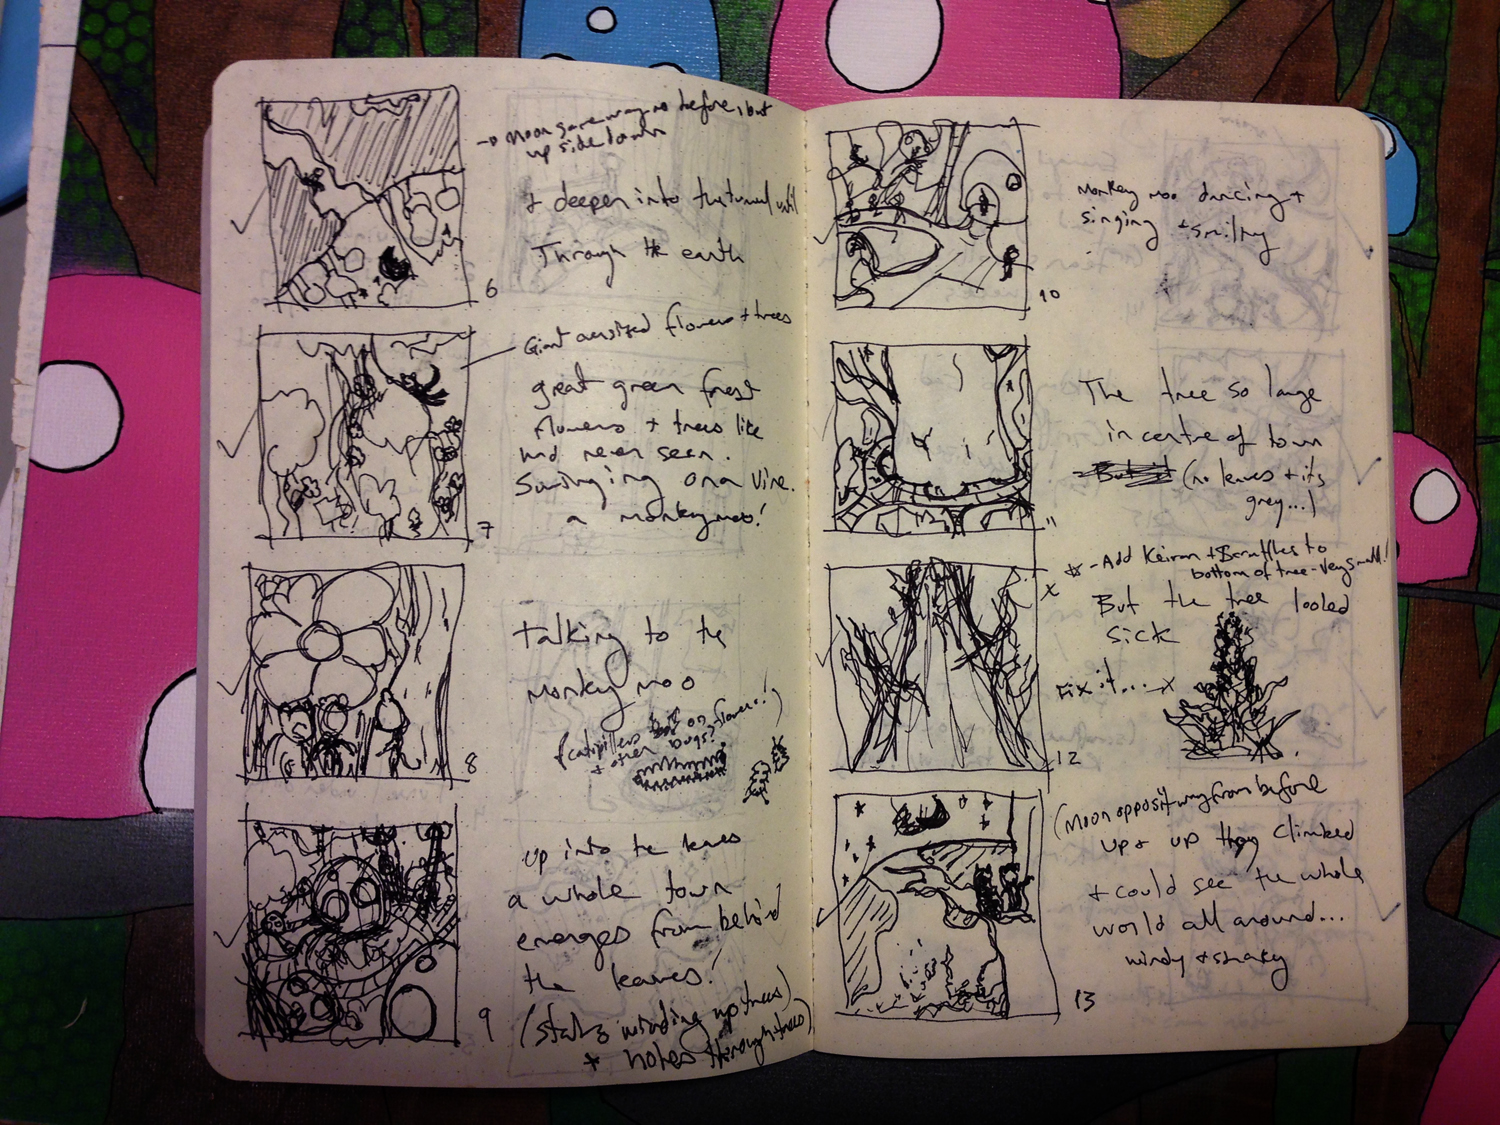 → Moon same way as before, but
up side down
+ deeper into the tunnel until
Through the earth
6
Giant oversized flowers + trees
great green forest
flowers + trees like
had never seen.
Swinging on a vine.
a monkey moo!
7
Talking to the
Monkey moo
(catipillers on flowers!)
+ other bugs?
8
up into the leaves
a whole town
emerges from behind
the leaves!
(stairs winding up trees)
+ holes through trees)
9
Monkey moo dancing +
singing + smiling
10
The tree so large
in centre of town
But (no leaves + its
grey...)
11
* - Add Keiran + Scruffles to
bottom of tree - very small!
x But the tree looked
sick
Fix it... → x
12
(Moon opposit way from before
up + up they climbed
+ could see the whole
world all around...
windy + shaky
13